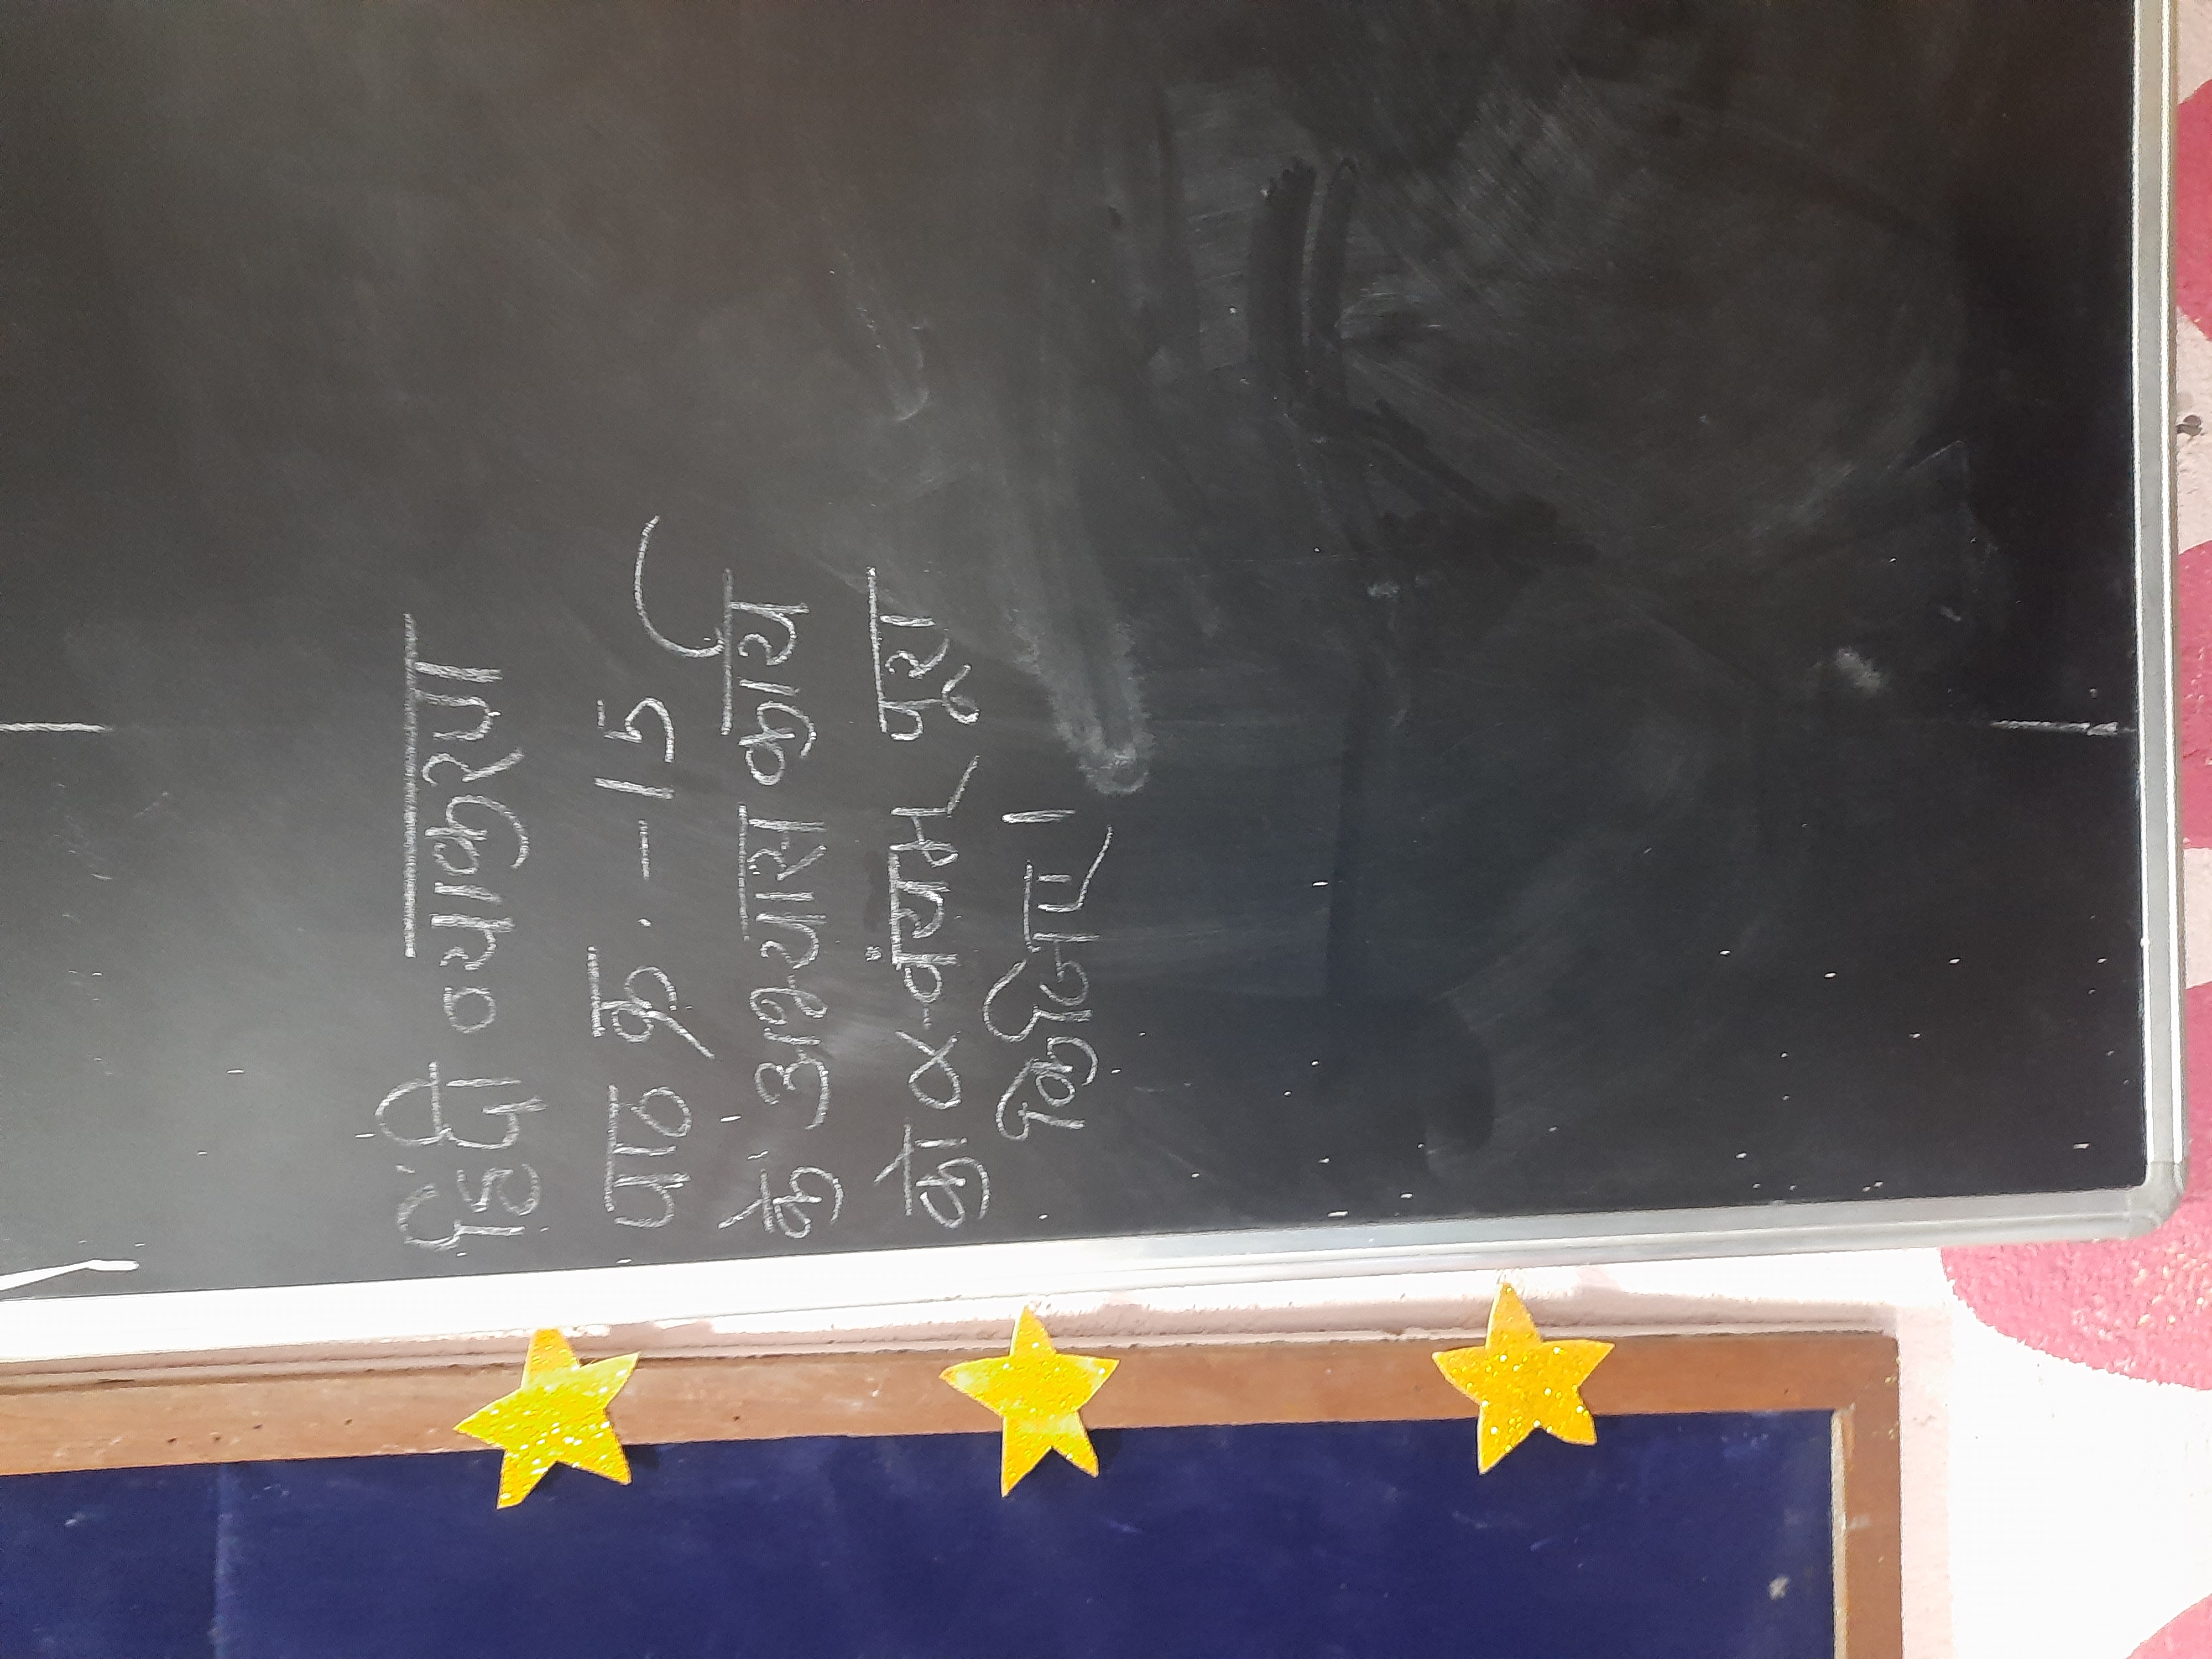 हिंदी व्याकरण
पाठ क्र. - 15
के अभ्यास कार्य
को पूरा
किजिए।